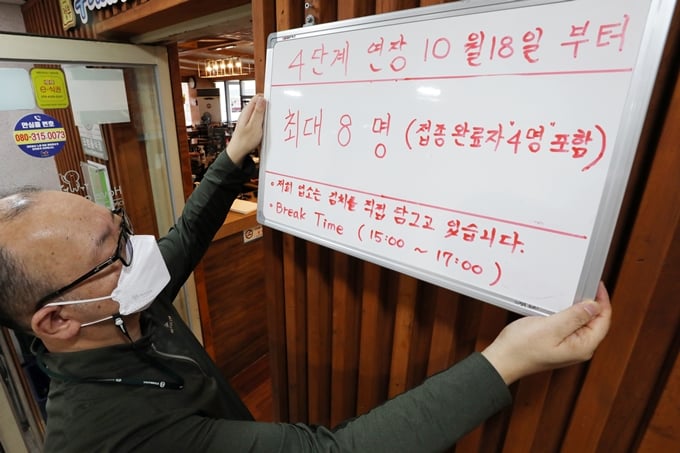 4단계 연장 10월18일 부터
최대 8 명 (접종완료자 "4명" 포함)
• 저희 업소는 김치를 직접 담그고 있습니다.
• Break Time (15:00 ~ 17:00)
안심콜 번호
080-315.0073